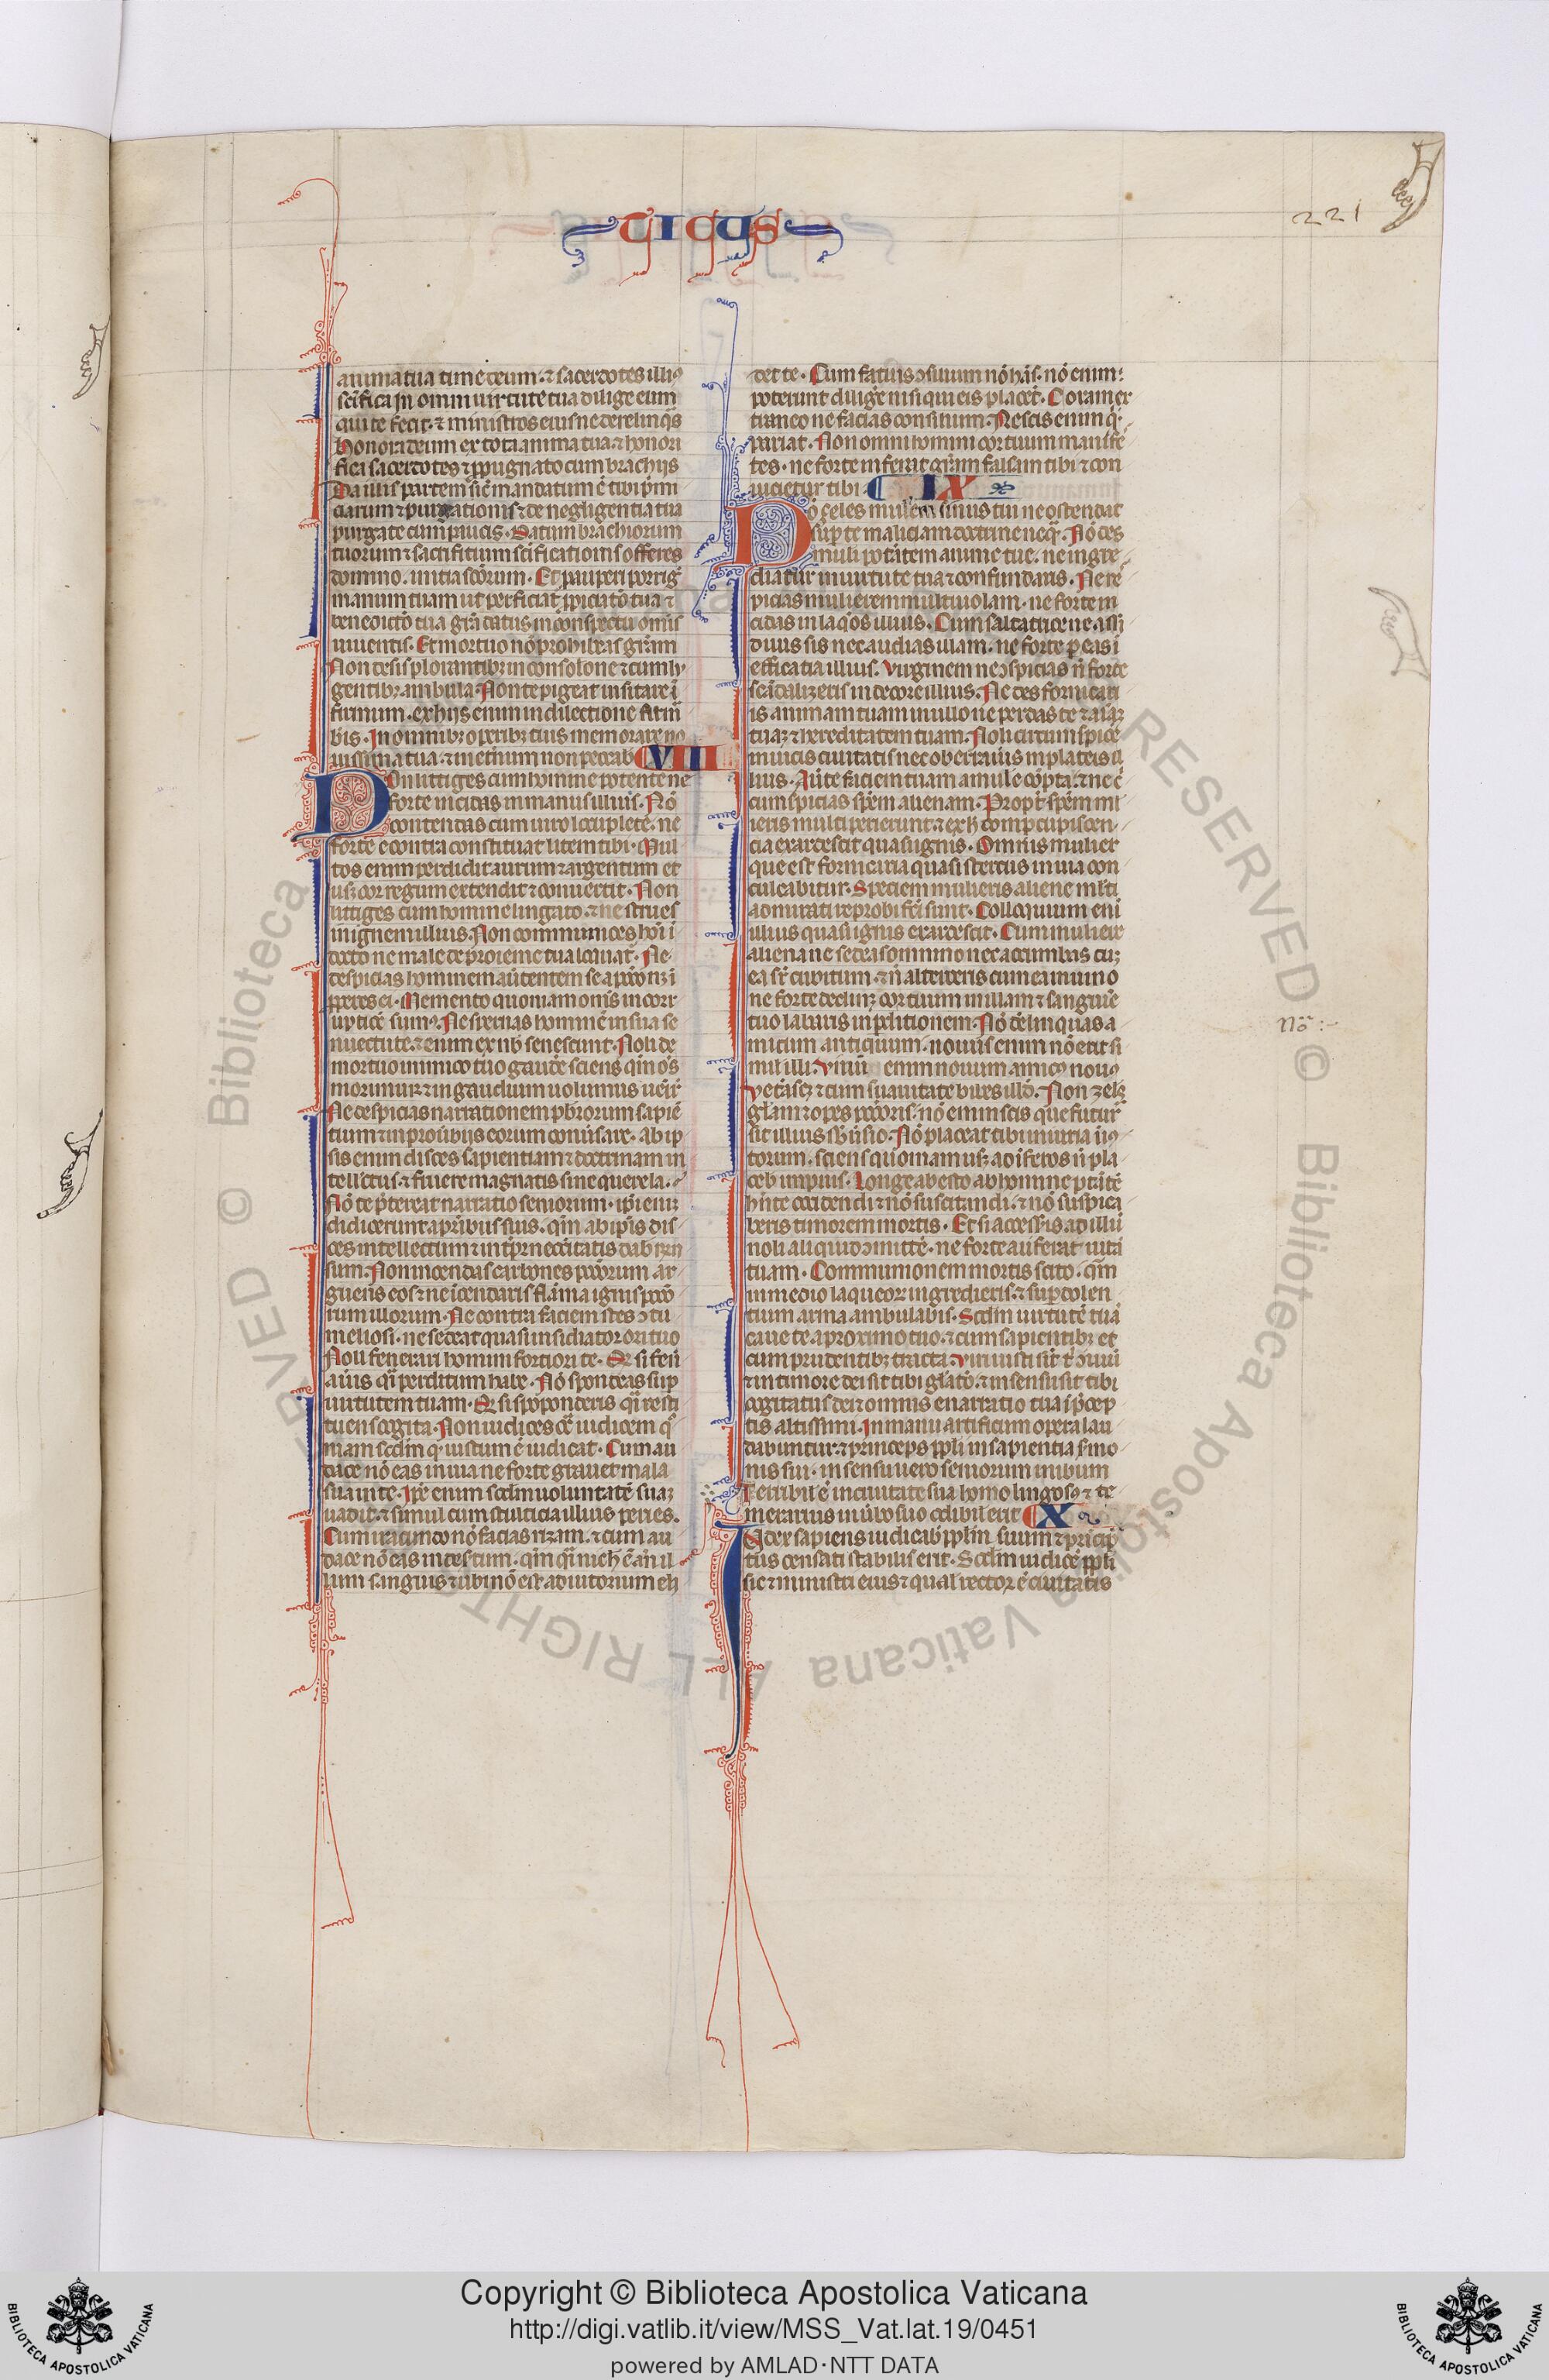 TICUS
221
anima tua time deum ⁊ sacerdotes illiꝰ
sc̄ifica In omni uirtute tua dilige eum
qui te fecit ⁊ ministros eius ne derelinq̄s
honora deum ex tota anima tua ⁊ honori
fica sacerdotes ⁊ ꝓpugnato cum brachijs
Da illis partem sic̄ mandatum ē tibi p̄mi
ciarum ⁊ purgationis ⁊ de negligentia tua
purga te cum paucis. Datum brachiorum
tuorum ⁊ sacrificium sc̄ificationis offeres
domino. initia sc̄orum. Et pauperi porriḡ
manum tuam ut perficiat̄ ꝓpiciatō tua ⁊
benedictō tua gr̄a datus in conspectu omīs
uiuentis. Et mortuo nō prohibeas gr̄am
Non desis plorantibꝫ in consolōne ⁊ cum lu
gentibꝫ ambula. Non te pigeat uisitare ī
firmum. ex hijs enim in dilectione firm̄
bis. In omnibꝫ operibꝫ tuis memorare no
uissima tua ⁊ in et̄num non peccab̄ VIII
Non litiges cum homine potente ne
forte incidas in manus illius. Nō
contendas cum uiro locuplete. ne
forte econtra constituat litem tibi. Mul
tos enim perdidit aurum ⁊ argentum et
usqꝫ cor regum extendit ⁊ conuertit. Non
litiges cum homine linguato. ⁊ ne strues
in ignem illius. Non communices hoī ī
docto ne male de progenie tua loquat̄. Ne
despicias hominem au̓tentem se a pctō nꝫ ī
ꝓperes ei. Memento quoniam om̄s in corr
uptiōe sumꝰ. Ne spernas hominē in sua se
nectute. ⁊ enim ex nobis senescunt. Noli de
mortuo inimico tuo gaudē sciens qm̄ om̄s
morimur ⁊ in gaudium uolumus ueīr
Ne despicias narrationem p̄sbrorum sapiē
tium ⁊ in prou̓biis eorum conūsare. ab ip
sis enim disces sapientiam ⁊ doctrinam in
tellectus. ⁊ seruire magnatis sine querela.
Nō te p̄tereat narratio seniorum. ip̄i enī
didicerunt a pr̄ibus suis. qm̄ ab ip̄is dis
ces intellectum ⁊ in tp̄r necc̄itatis dab̄ rn̄
sum. Non incendas carbones pctōrum ar
guens eos ⁊ ne īcendaris flāma ignis pctō
rum illorum. Ne contra faciem stes ꝯtu
meliosi. ne sedeat quasi insidiator ori tuo
Noli fenerari homini fortiori te. Qd̓ si fen̄
auīs qi̓ perditum habe. Nō spondeas sup̄
uirtutem tuam. Qd̓ si spoponderis qi̓ resti
tuens cogita. Non iudices ꝯtͣ iudicem qꝰ
niam scdm̄ qd̓ iustum ē iudicat. Cum au
dace nō eas in uia ne forte grauet mala
sua in te. Ip̄e enim scdm̄ uoluntatē suaꝫ
uadit. ⁊ simul cum stulticia illius peries.
Cum iracundo nō facias rixam. ⁊ cum au
dace nō eas in desertum. qm̄ qi̓ nich̄ ē an̄ il
lum sanguis ⁊ ubi nō est adiutorium eli
det te. Cum fatuis ꝯsilium nō h̄as. nō enim
poterunt dilig̓e nisi qui eis placet̄. Coram ex
traneo ne facias consilium. Nescis enim qd̓
pariat. Non omni homini cor tuum manife
stes. ne forte inferat gr̄am falsam tibi ⁊ con
uicietur tibi IX
Nō zeles mulierem sinus tui ne ostendat
sup̄ te maliciam doctrine neq̄. Nō des
mulie̓ri potatem anime tue. ne ingre
diatur in uirtute tua ⁊ confundaris. Ne re
spicias mulierem multiuolam. ne forte in
cidas in laq̓os illius. Cum saltatrice ne assi
duus sis nec audias illam. ne forte peas ī
efficatia illius. Virginem ne ꝯspicias n̄ forte
scādalizeris in decore illius. Ne des fornicari
is animam tuam in ullo ne perdas te ⁊ aīaꝫ
tuaꝫ ⁊ hereditatem tuam. Noli circumspicē
in uicis ciuitatis nec oberraūis in plateis il
lius. Au̓te faciem tuam a mulie̓ cōpta. ⁊ ne cir
cumspicias spēm alienam. Propt̓ spēm mu
lieris multi perierunt. ⁊ ex h̓ concupiscen
cia exardescit quasi ignis. Omnis mulier
que est fornicaria quasi stercus in uia con
culcabitur. Speciem mulieris aliene ml̓ti
admirati reprobi fc̄i sunt. Colloquium enī
illius quasi ignis exardescit. Cum muliere
aliena ne sedeas omnino nec accumbas cuꝫ
ea sr̄ cubitum. ⁊ n̄ alterceris cum ea in uino
ne forte declinꝫ cor tuum in illam ⁊ sanguīe
tuo labaris in p̄ditionem. Nō delinquas a
micum antiquum. nouus enim nō erit si
mil̓ illi. Vinū enim nouum amicꝰ nouꝰ
ueterascꝫ ⁊ cum suauitate bibes illd̓. Non zeles
gl̓am ⁊ opes pctōris. nō enim scis que futura
sit illius sb̓ūsio. Nō placeat tibi iniuria iniꝰ
torum. sciens quoniam usqꝫ ad īferos n̄ pla
ceb̄ impius. Longe abesto ab homine ptātē
h̄nte occidendi ⁊ nō suscitandi. ⁊ nō suspica
beris timorem mortis. Et si accesseris ad illū
noli aliquid ꝯmittē. ne forte auferat uitā
tuam. Communionem mortis scito. qm̄
in medio laqueorꝫ ingredieris. ⁊ sup̄ dolen
tium arma ambulabis. Scdm̄ uirtutē tuā
caue te a proximo tuo. ⁊ cum sapientibꝫ et
cum prudentibꝫ tracta. Viri iusti sīt t̓ ꝯuiui
⁊ in timore dei sit tibi gl̓atō. ⁊ in sensu sit tibi
cogitatus dei ⁊ omnis enarratio tua ī p̄cep
tis altissimi. In manu artificum opera lau
dabuntur. ⁊ princeps ppl̓i in sapientia sermo
nis sui. in sensu uero seniorum uerbum
Terribil̓ ē in ciuitate sua homo lingosꝰ ⁊ te
merarius in u̓bo suo odibil̓ erit X
Iudex sapiens iudicab̄ ppl̓m suum ⁊ p̄ncip̄
tus censati stabilis erit. Scdm̄ iudicē ppl̓i
sic ⁊ ministri eius ⁊ qual̓ rector ē ciuitatis
No͞a :~
Copyright © Biblioteca Apostolica Vaticana
http://digi.vatlib.it/view/MSS_Vat.lat.19/0451
powered by AMLAD·NTT DATA
BIBLIOTECA APOSTOLICA VATICANA
BIBLIOTECA APOSTOLICA VATICANA